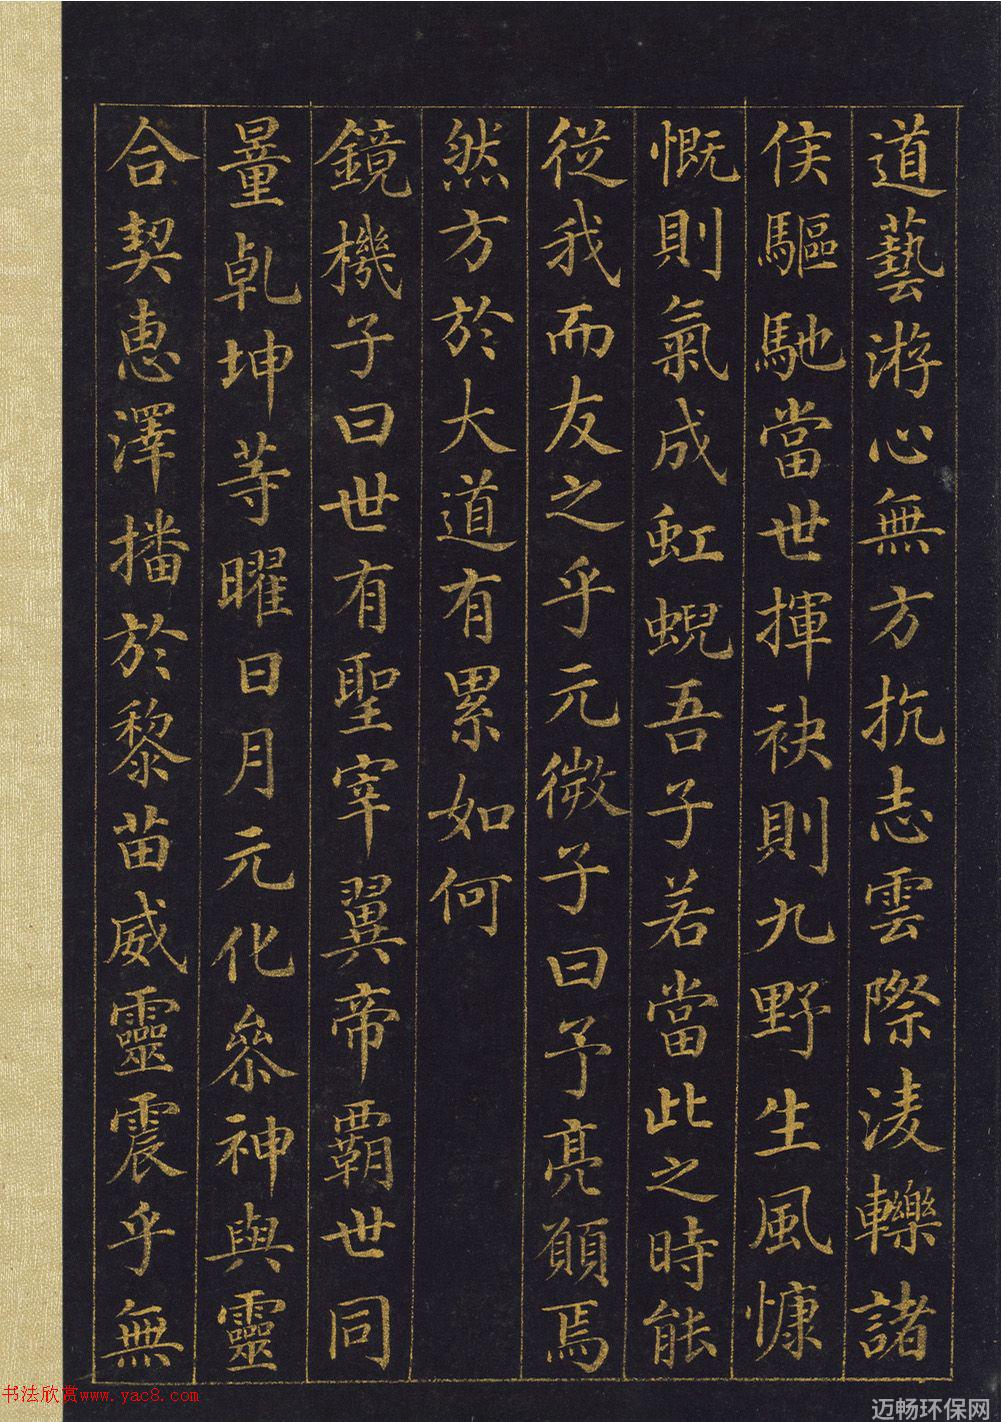 道藝游心無方抗志雲際淩轢諸
侯驅馳當世揮袂則九野生風慷
慨則氣成虹蜺吾子若當此之時能
從我而友之乎元微子曰予亮願焉
然方於大道有累如何
鏡機子曰世有聖宰翼帝霸世同
量乹坤等曜日月元化叅神與靈
合契惠澤播於黎苗威靈震乎無
书法欣赏www.yac8.com
迈畅环保网